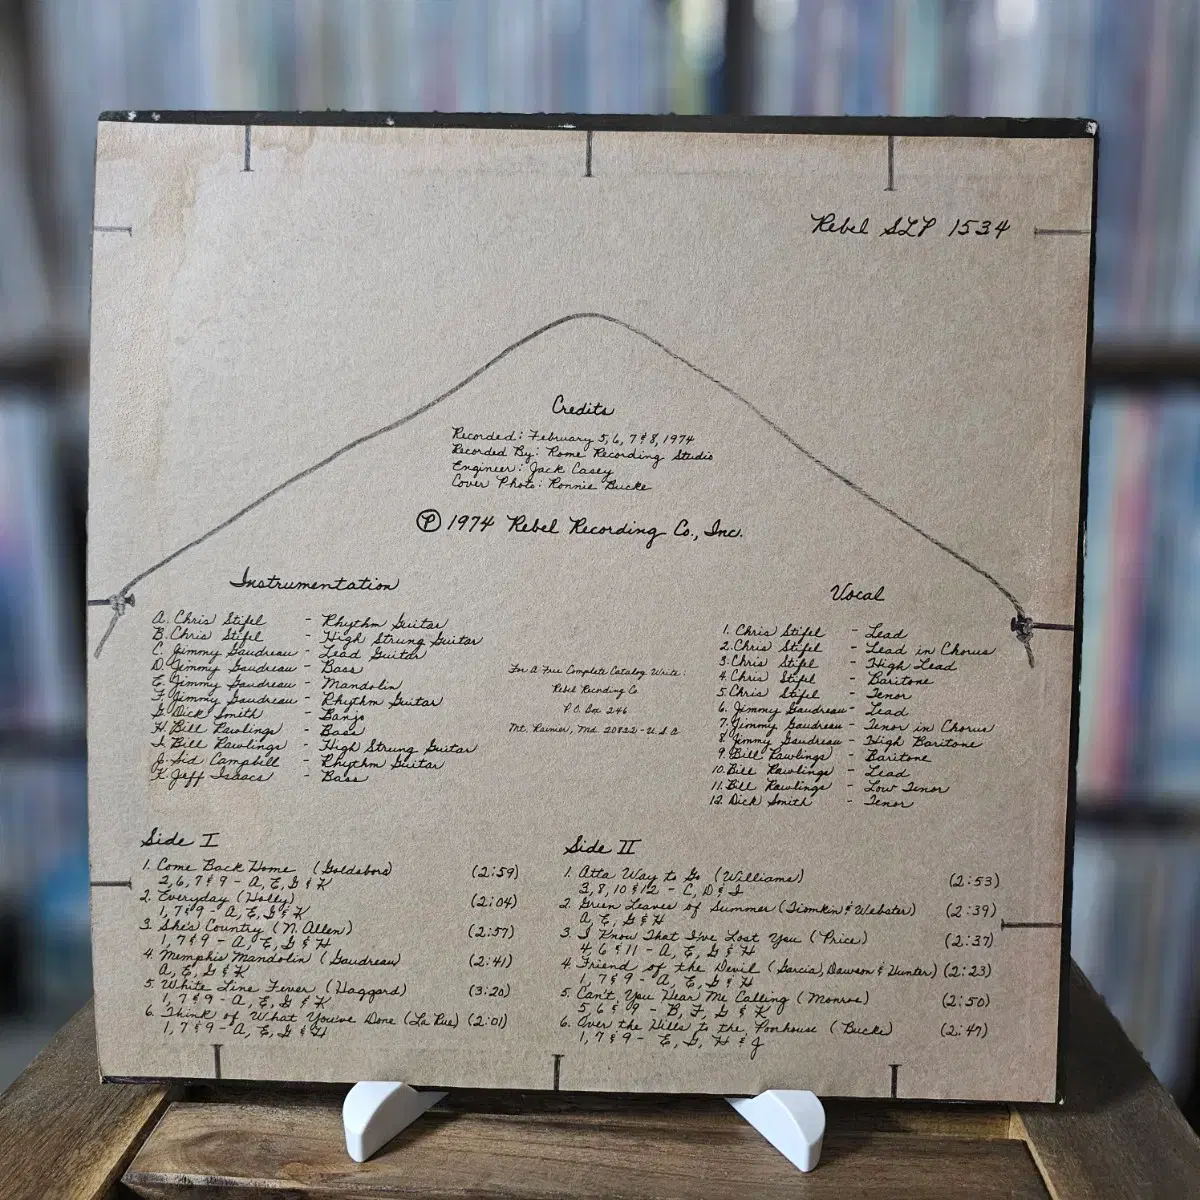 Rebel SLP 1534
Credits
Recorded: February 5, 6, 7 & 8, 1974
Recorded By: Rome Recording Studio
Engineer: Jack Casey
Cover Photo: Ronnie Bucke
℗ 1974 Rebel Recording Co., Inc.
Instrumentation
A. Chris Stifel - Rhythm Guitar
B. Chris Stifel - High Strung Guitar
C. Jimmy Gaudreau - Lead Guitar
D. Jimmy Gaudreau - Bass
E. Jimmy Gaudreau - Mandolin
F. Jimmy Gaudreau - Rhythm Guitar
G. Dick Smith - Banjo
H. Bill Rawlings - Bass
I. Bill Rawlings - High Strung Guitar
J. Sid Campbell - Rhythm Guitar
K. Jeff Isaacs - Bass
For A Free Complete Catalog Write:
Rebel Recording Co.
P.O. Box 246
Mt. Rainier, Md. 20822 - U.S.A
Vocal
1. Chris Stifel - Lead
2. Chris Stifel - Lead in Chorus
3. Chris Stifel - High Lead
4. Chris Stifel - Baritone
5. Chris Stifel - Tenor
6. Jimmy Gaudreau - Lead
7. Jimmy Gaudreau - Tenor in Chorus
8. Jimmy Gaudreau - High Baritone
9. Bill Rawlings - Baritone
10. Bill Rawlings - Lead
11. Bill Rawlings - Low Tenor
12. Dick Smith - Tenor
Side I
1. Come Back Home (Goldsboro) (2:59)
2, 6, 7 & 9 - A, E, G & K
2. Everyday (Holly) (2:04)
1, 7 & 9 - A, E, G & K
3. She's Country (N. Allen) (2:57)
1, 7 & 9 - A, E, G & H
4. Memphis Mandolin (Gaudreau) (2:41)
A, E, G & K
5. White Line Fever (Haggard) (3:20)
1, 7 & 9 - A, E, G & K
6. Think of What You've Done (La Rue) (2:01)
1, 7 & 9 - A, E, G & H
Side II
1. Atta Way to Go (Williams) (2:53)
3, 8, 10 & 12 - C, D & I
2. Green Leaves of Summer (Tiomkin & Webster) (2:39)
A, E, G & H
3. I Know That I've Lost You (Price) (2:37)
4, 6 & 11 - A, E, G & H
4. Friend of the Devil (Garcia, Dawson & Hunter) (2:23)
1, 7 & 9 - A, E, G & H
5. Can't You Hear Me Calling (Monroe) (2:50)
5, 6 & 9 - B, F, G & K
6. Over the Hills to the Poorhouse (Bucke) (2:47)
1, 7 & 9 - E, G, H & J